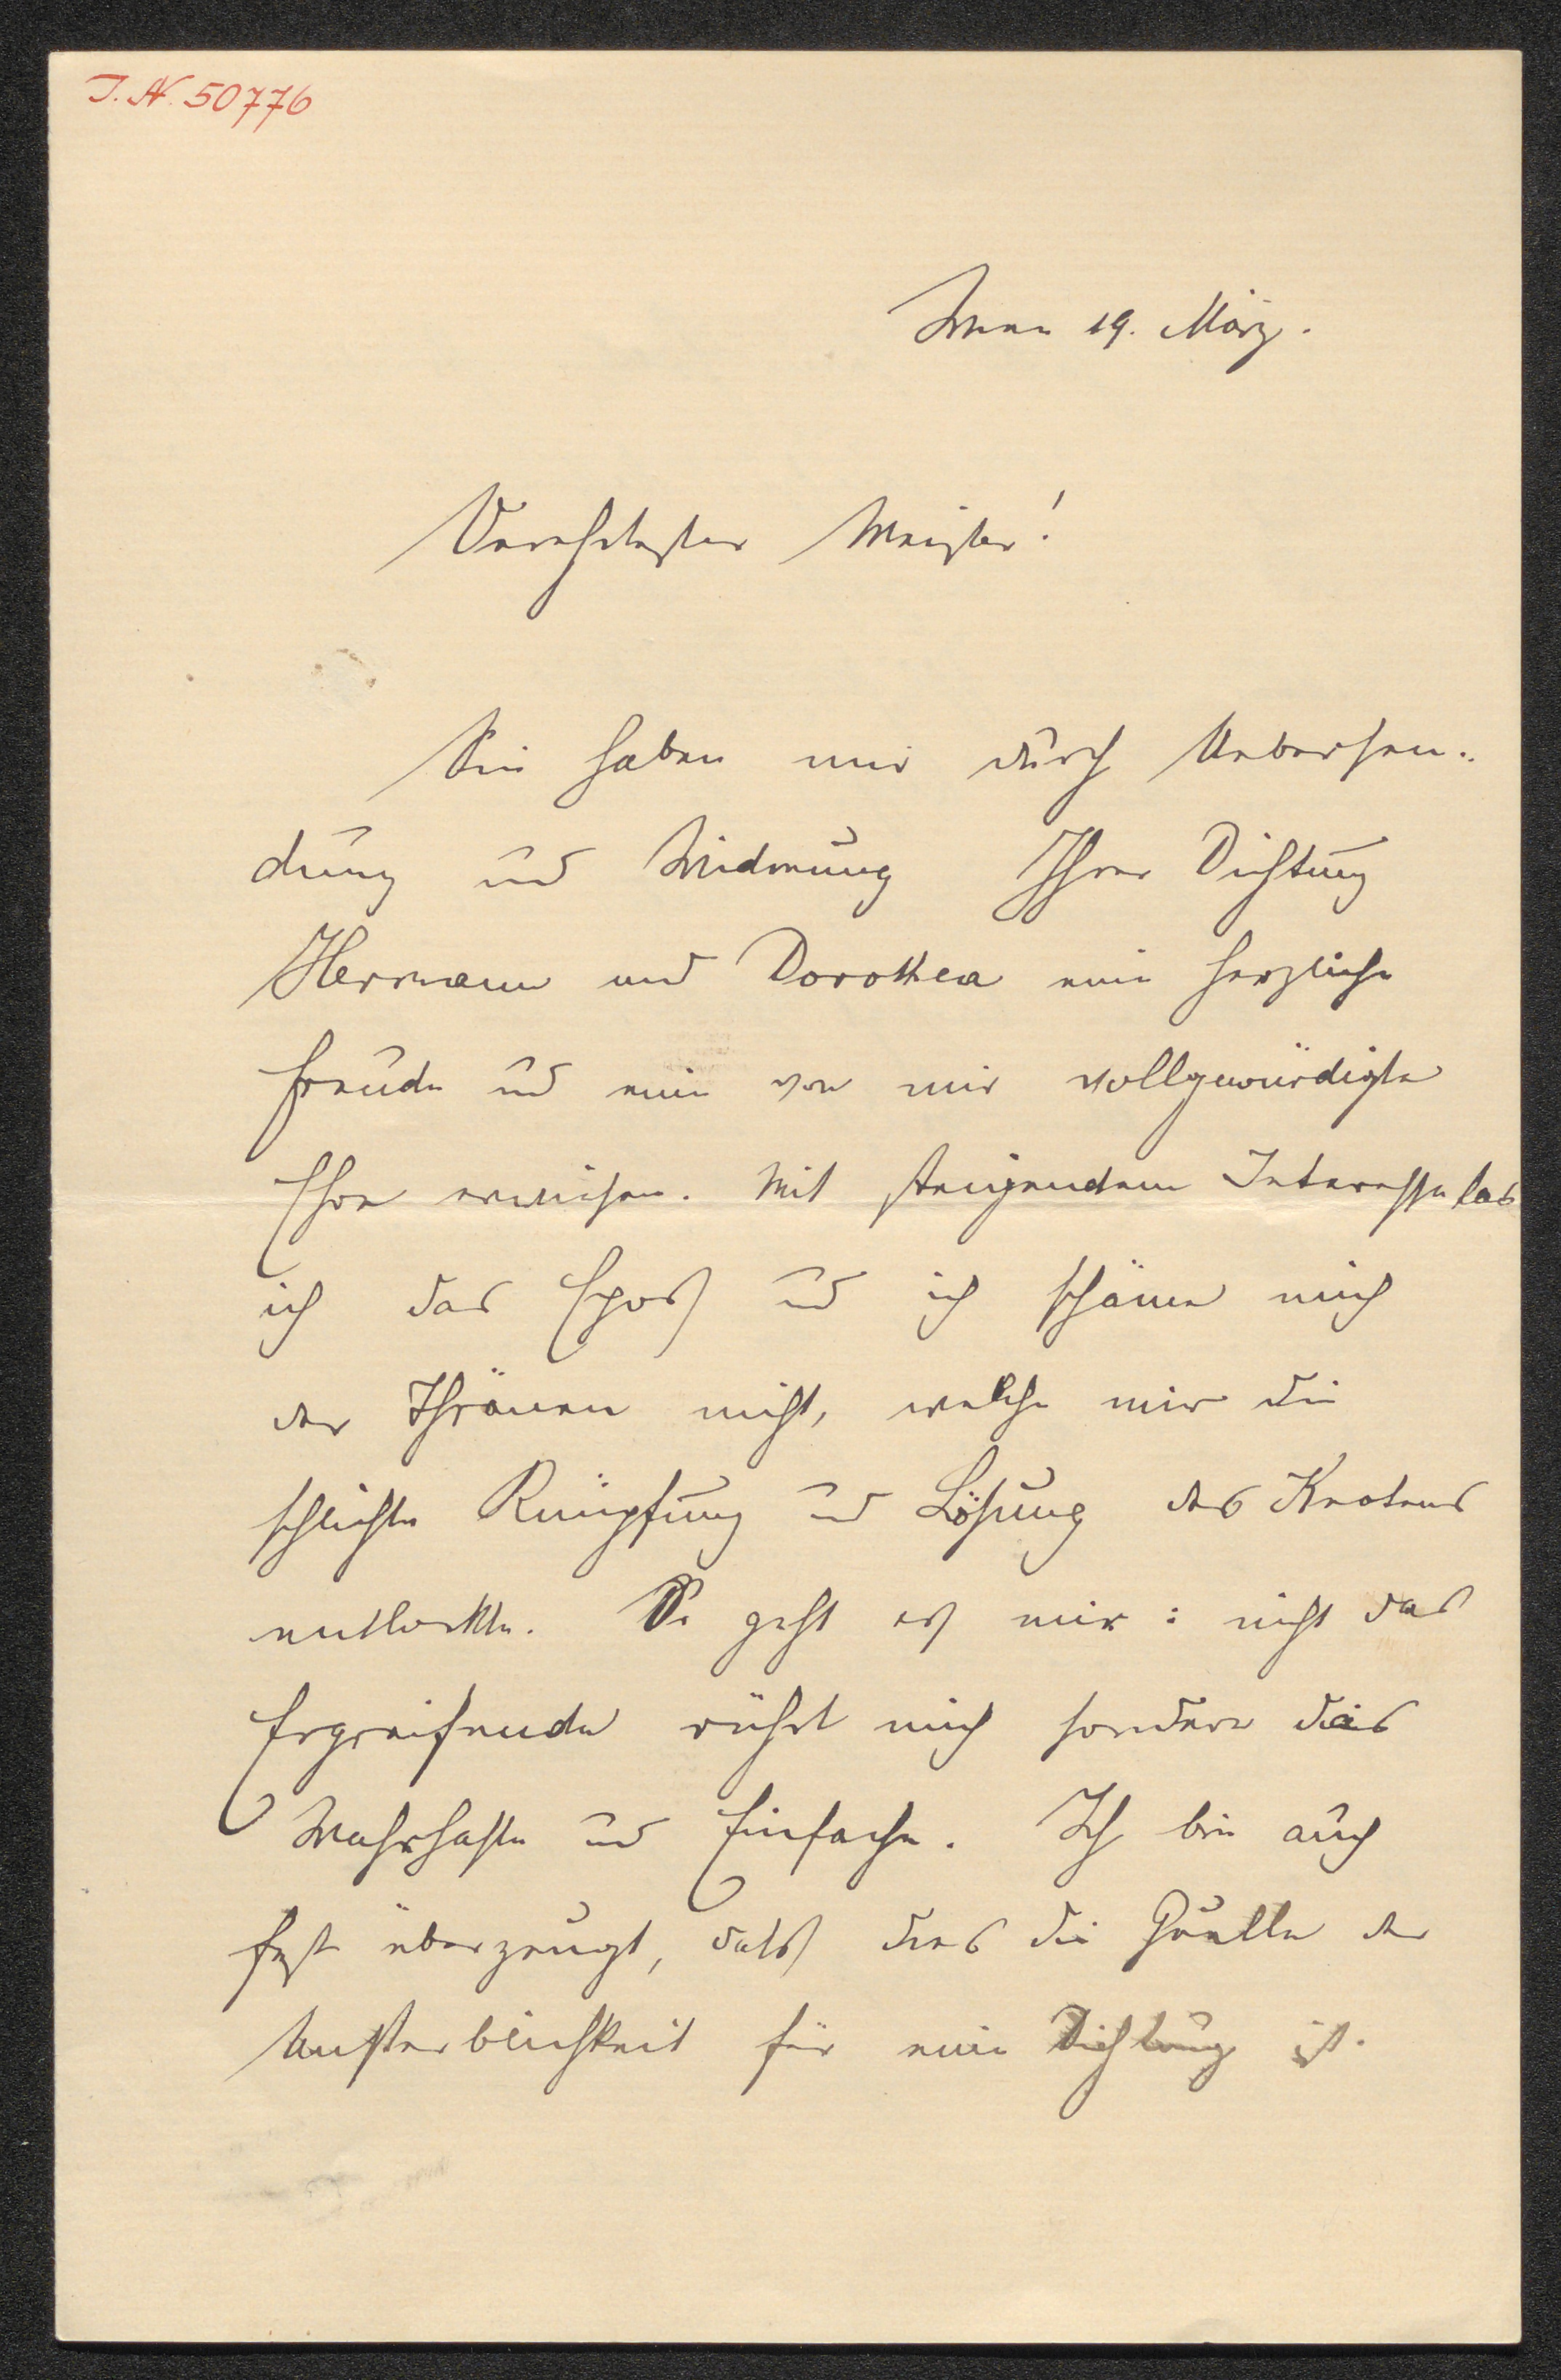 I. N. 50776
Wien 19. März.
Verehrtester Meister!
Sie haben mir durch Uebersen-
dung und Widmung Ihrer Dichtung
Herrmann und Dorothea eine herzliche
Freude und eine von mir vollgewürdigte
Ehre erwiesen. Mit steigendem Interesse las
ich das Epos und ich schäme mich
der Thränen nicht, welche mir die
schlichte Knüpfung und Lösung des Knotens
entlockte. So geht es mir: nicht das
Ergreifende rührt mich sondern das
Wahrhafte und Einfache. Ich bin auch
fest überzeugt, dass dies die Quelle der
Unsterblichkeit für eine Dichtung ist.